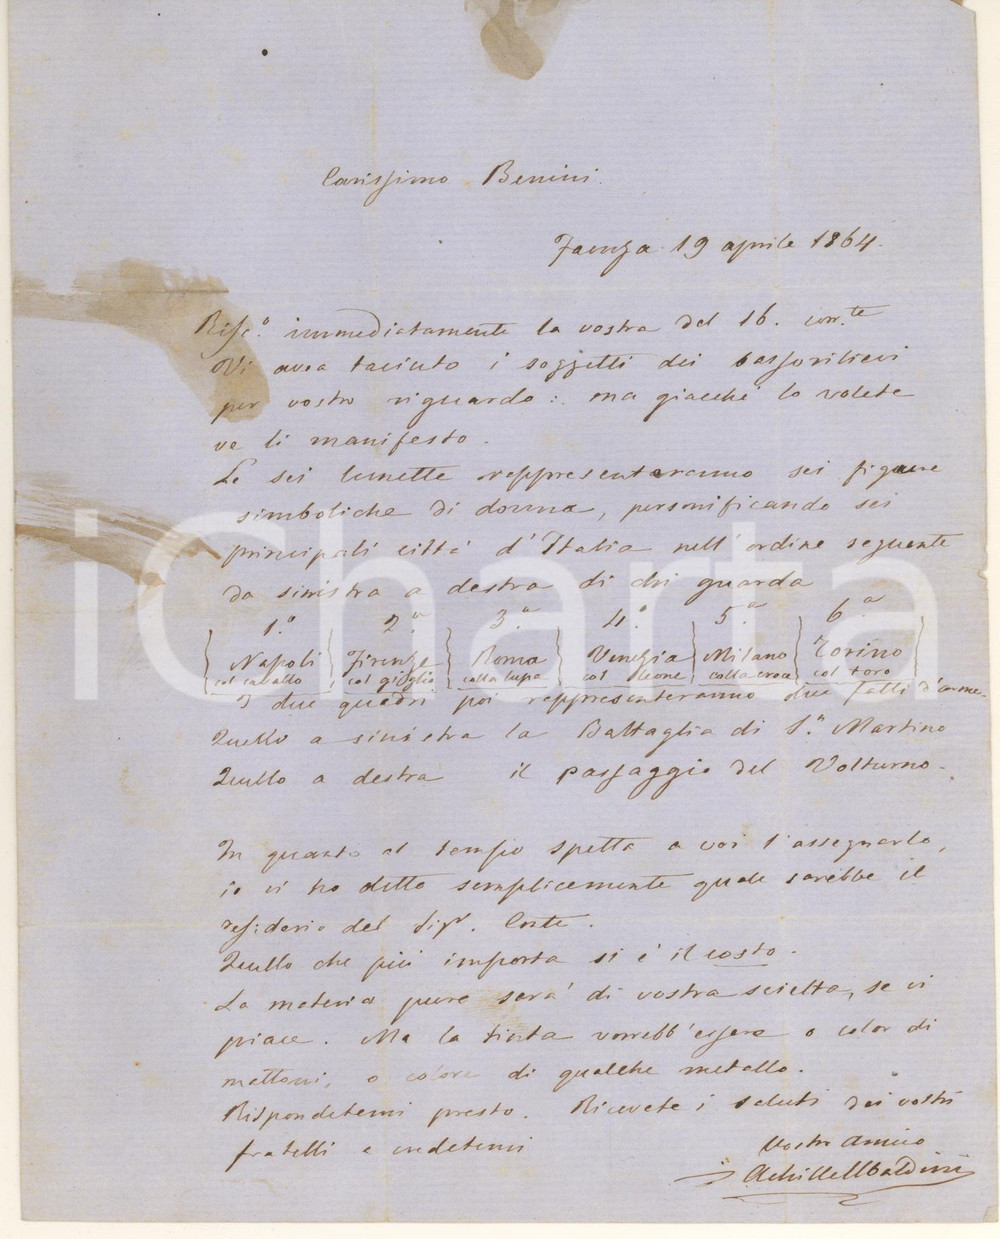 Carissimo Benini.
Faenza 19 aprile 1864.
Risc.º immediatamente la vostra del 16. corr.te
Vi avea taciuto i soggetti dei bassorilievi
per vostro riguardo: ma giacchè lo volete
ve li manifesto.
Le sei lunette rappresenteranno sei figure
simboliche di donna, personificando sei
principali città d'Italia nell'ordine seguente
da sinistra a destra di chi guarda
1.ª 2.ª 3.ª 4.ª 5.ª 6.ª
Napoli Firenze Roma Venezia Milano Torino
col cavallo col giglio colla lupa col leone colla croce col toro
I due quadri poi rappresenteranno due fatti d'arme.
Quello a sinistra la Battaglia di S.n Martino
Quello a destra il passaggio del Volturno.
In quanto al tempo spetta a voi l'assegnarlo,
io vi ho detto semplicemente quale sarebbe il
desiderio del Sigr. Conte.
Quello che più importa si è il costo.
La materia pure sarà di vostra scielta, se vi
piace. Ma la tinta vorrebb'essere o color di
mattoni, o colore di qualche metallo.
Rispondetemi presto. Ricevete i saluti dei vostri
fratelli e credetemi
Vostro Amico
Achille Ubaldini
iCharta